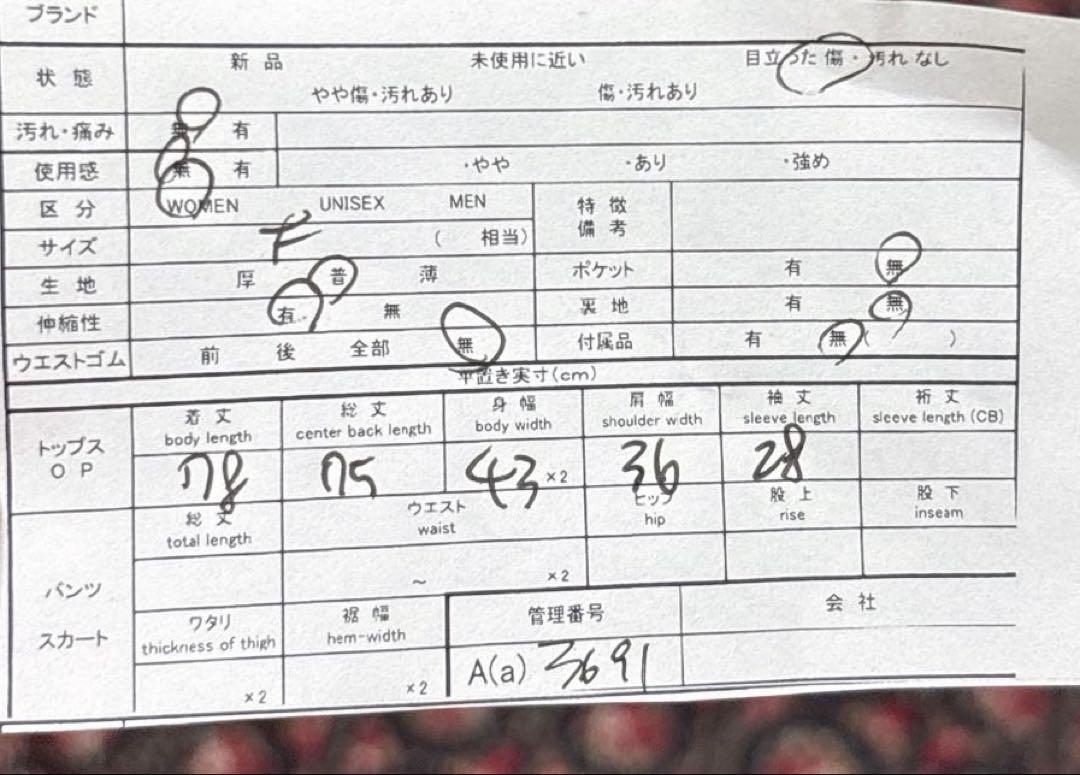 ブランド
状態 新品 未使用に近い 目立った傷・汚れなし
やや傷・汚れあり 傷・汚れあり
汚れ・痛み 無 有
使用感 無 有 ・やや ・あり ・強め
区分 WOMEN UNISEX MEN 特徴備考
サイズ F ( 相当)
生地 厚 普 薄 ポケット 有 無
伸縮性 有 無 裏地 有 無
ウエストゴム 前 後 全部 無 付属品 有 無( )
平置き実寸(cm)
トップス OP
着丈 総丈 身幅 肩幅 袖丈 裄丈
body length center back length body width shoulder wdth sleeve length sleeve length (CB)
78 75 43 ×2 36 28
パンツ スカート
総丈 ウエスト ヒップ 股上 股下
total length waist hip rise inseam
~ ×2
ワタリ 裾幅 管理番号 会社
thickness of thigh hem-width
×2 ×2 A(a) 3691